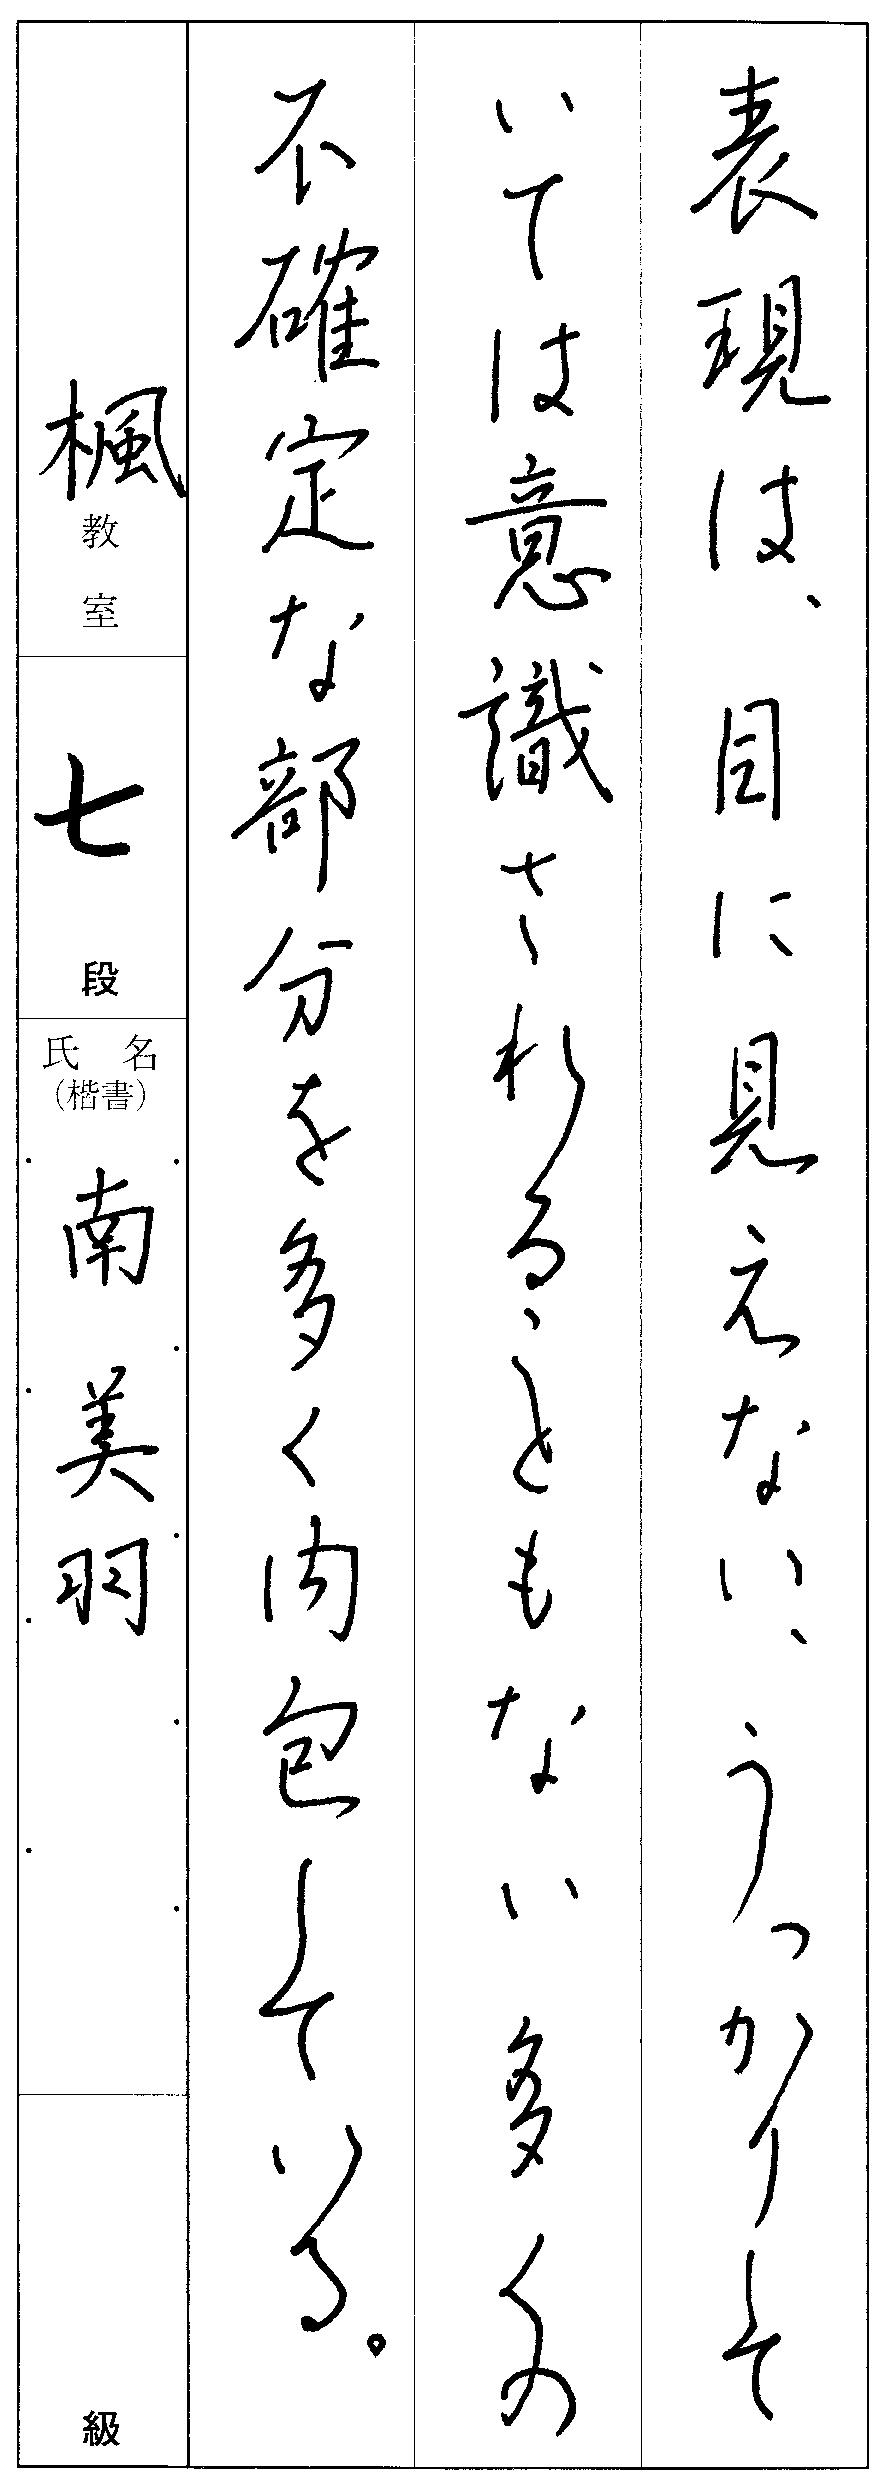 表現は、目に見えない、うっかりして
いては意識されることもない多くの
不確定な部分を多く内包している。
楓教室
七段
氏名
(楷書)
南美羽
級